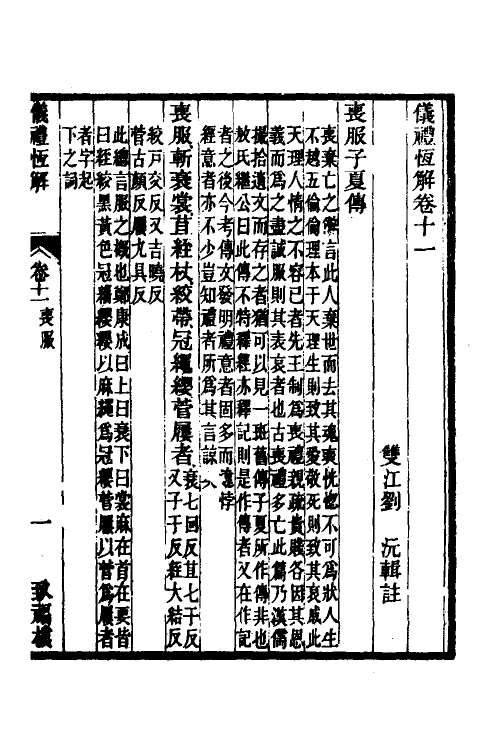 儀禮恆解卷十一
雙江劉　沅輯註
喪服子夏傳
喪棄亡之辭言此人棄世而去其魂爽恍惚不可爲狀人生
不越五倫倫理本于天理生則致其愛敬死則致其哀戚此
天理人情之不容已者先王制爲喪禮視疏貴賤各因其恩
義而爲之盡誠服則其表哀者也古喪禮多亡此篇乃漢儒
掇拾遺文而存之者猶可以見一斑舊傳子夏所作傳非也
敖氏繼公曰此傳不特釋經亦釋記則是作傳者又在作記
者之後今考傳文發明禮意者固多而違悖
經意者亦不少豈知禮者所爲其言諒
喪服斬衰裳苴絰杖絞帶冠繩纓菅屨者
衰七回反苴七于反
又子于反絰大結反
絞戸交反又吉曉反
菅古顏反屨九具反
此總言服之概也鄭康成曰上曰衰下曰裳麻在首在要皆
曰絰絞黑黃色冠繩纓纓以麻繩爲冠纓菅屨以菅爲屨者
者字起
下之詞
儀禮恆解
卷十一　喪服
一
致福樓